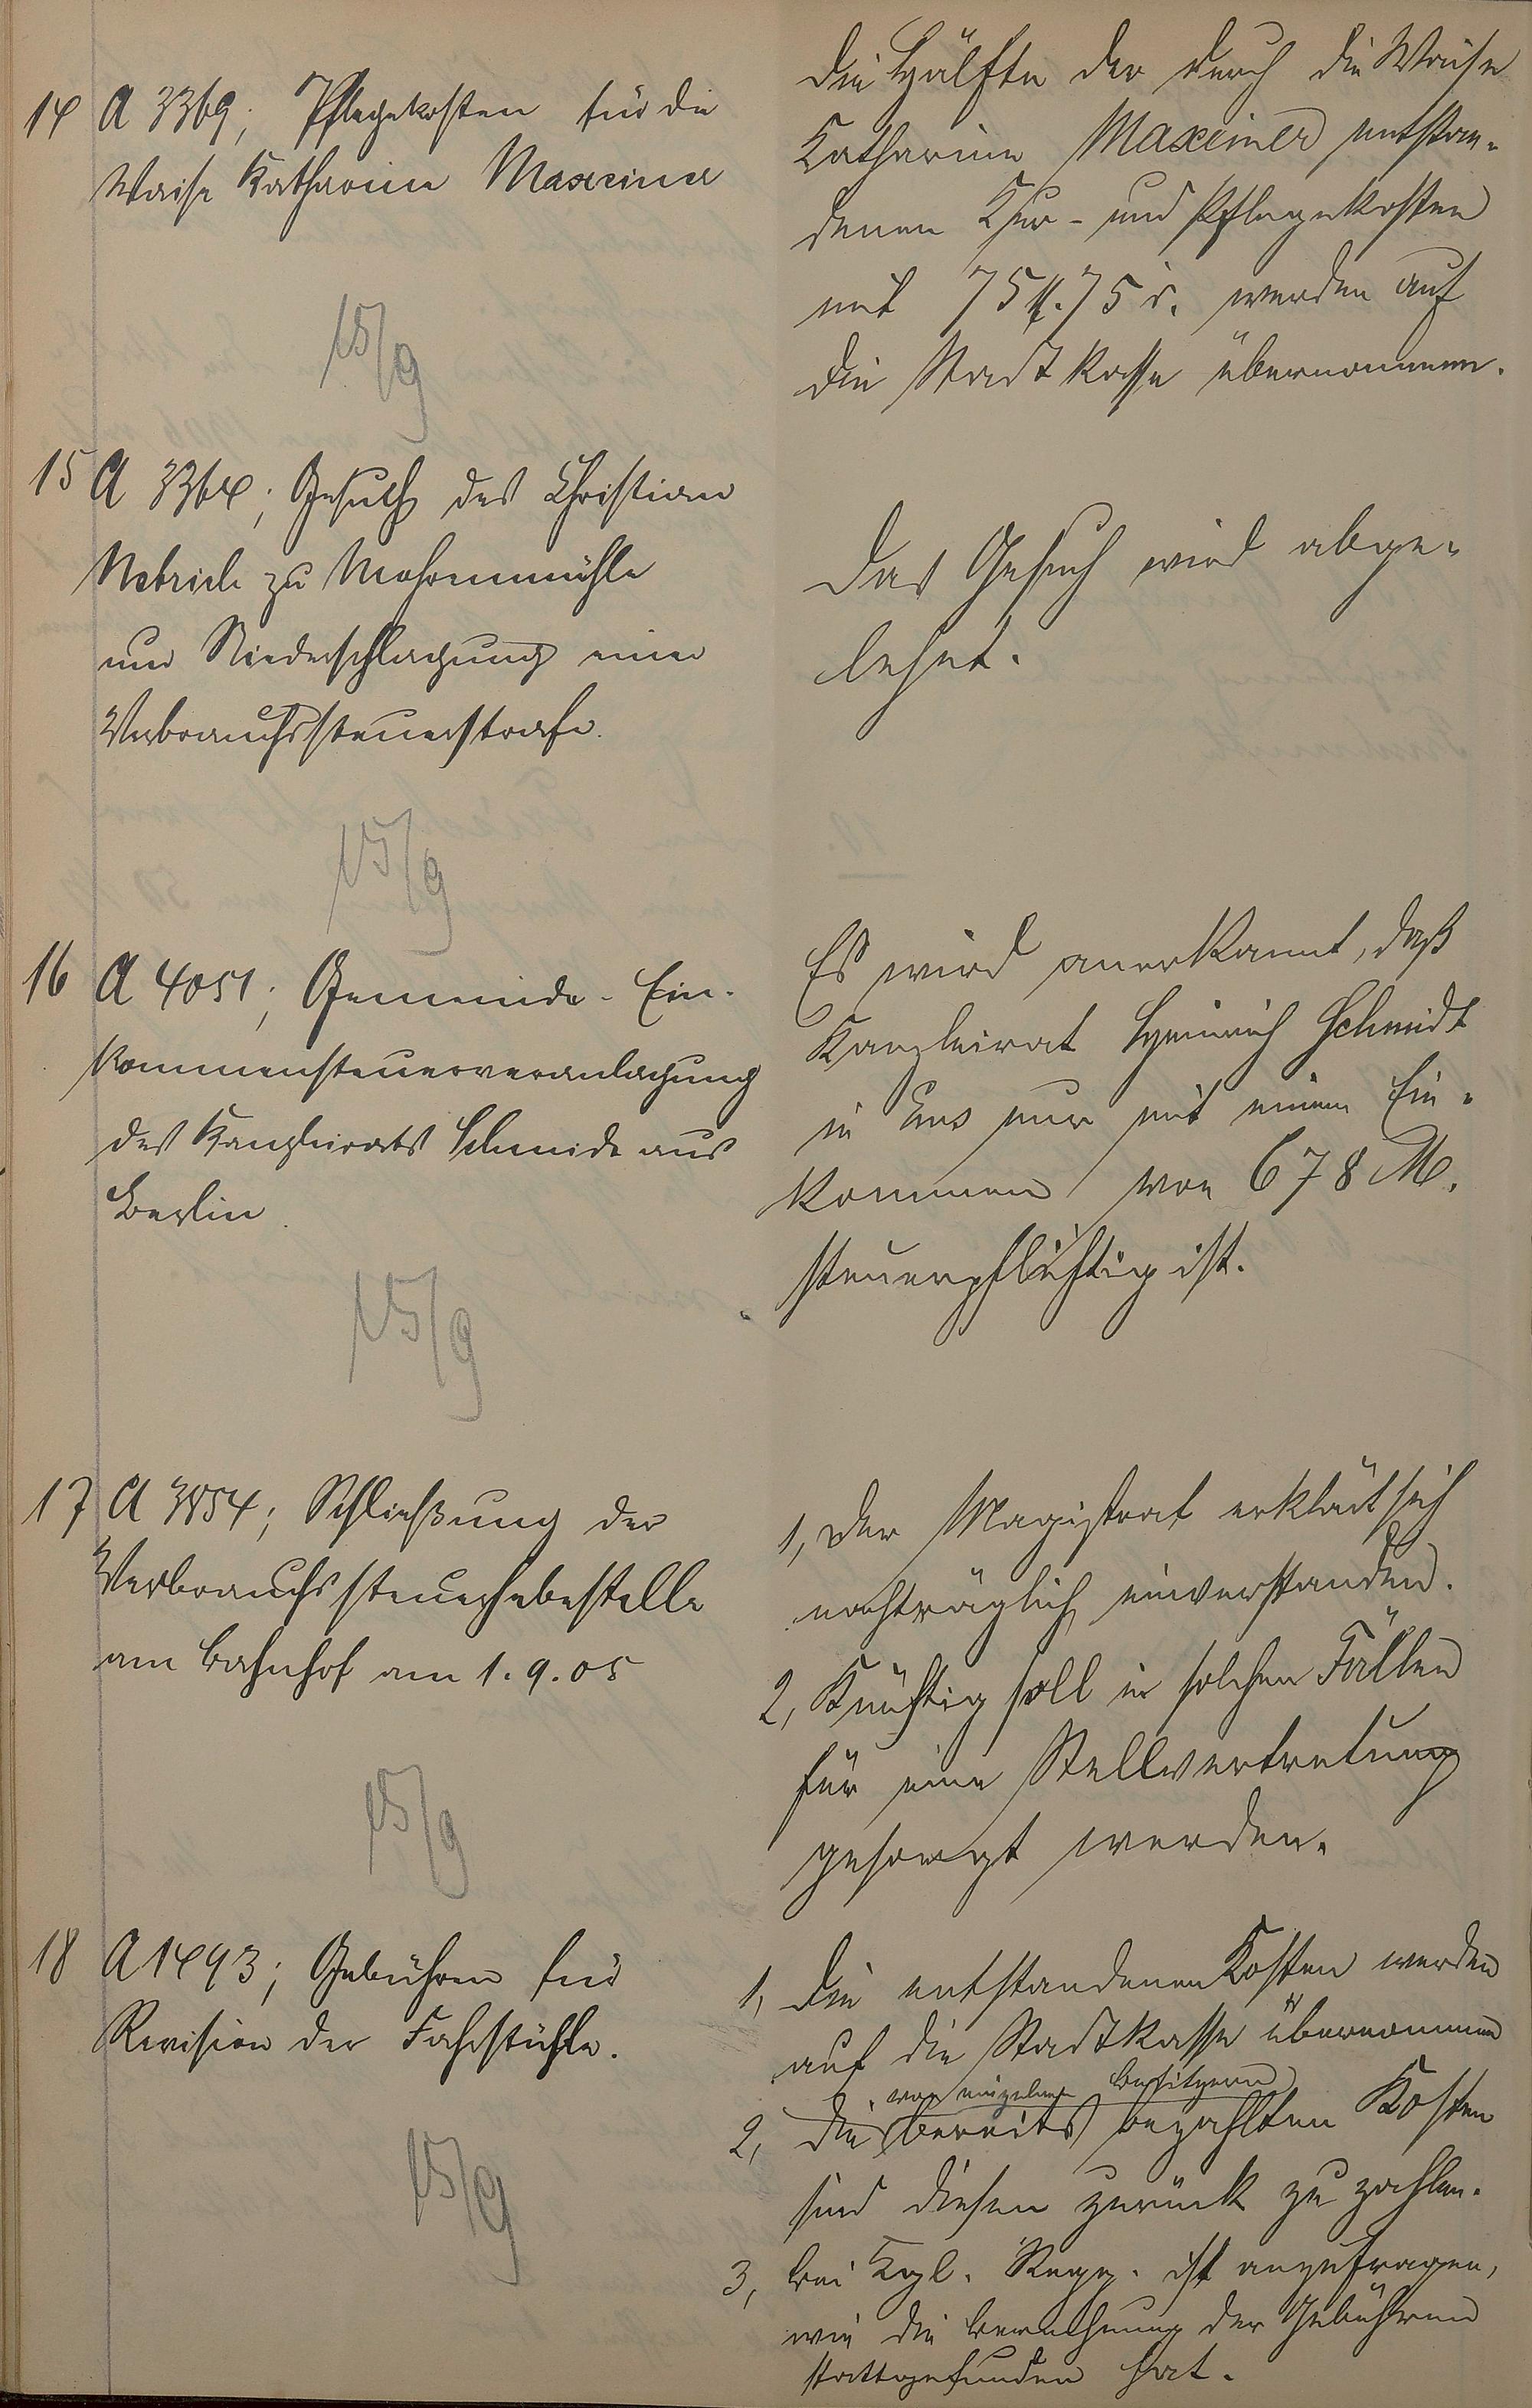 14 A 3369; Pflegekosten für die
Waise Katharina Maxeiner
15/9
Die Hälfte der durch die Waise
Katharina Maxeiner entstan-
denen Kur- und Pflegekosten
mit 75 M. 75 d. werden auf
die Stadtkasse übernommen.
15 A 3364; Gesuch des Christian
zu
um Niederschlagung einer
Verbrauchssteuerstrafe.
15/9
Das Gesuch wird abge-
lehnt.
16 A 4051; Gemeinde-Ein-
kommensteuerveranlagung
des Kanzleirats Schmidt aus
Berlin.
15/9
Es wird anerkannt, daß
Kanzleirat Heinrich Schmidt
in Ems nur mit einem Ein-
kommen von 678 M.
steuerpflichtig ist.
17 A 3854; Schließung der
Verbrauchssteuerhebestelle
am Bahnhof am 1.9.05
15/9
1, Der Magistrat erklärt sich
nachträglich einverstanden.
2, Künftig soll in solchen Fällen
für eine Stellvertretung
gesorgt werden.
18 A 1493; Gebühren für
Revision der Fahrstühle.
15/9
1, Die entstandenen Kosten werden
auf die Stadtkasse übernommen
von einzelnen Besitzern
2, Die bereits bezahlten Kosten
sind diesen zurück zu zahlen.
3, Bei Kgl. Regg. ist anzufragen,
wie die Berechnung der Gebühren
stattgefunden hat.